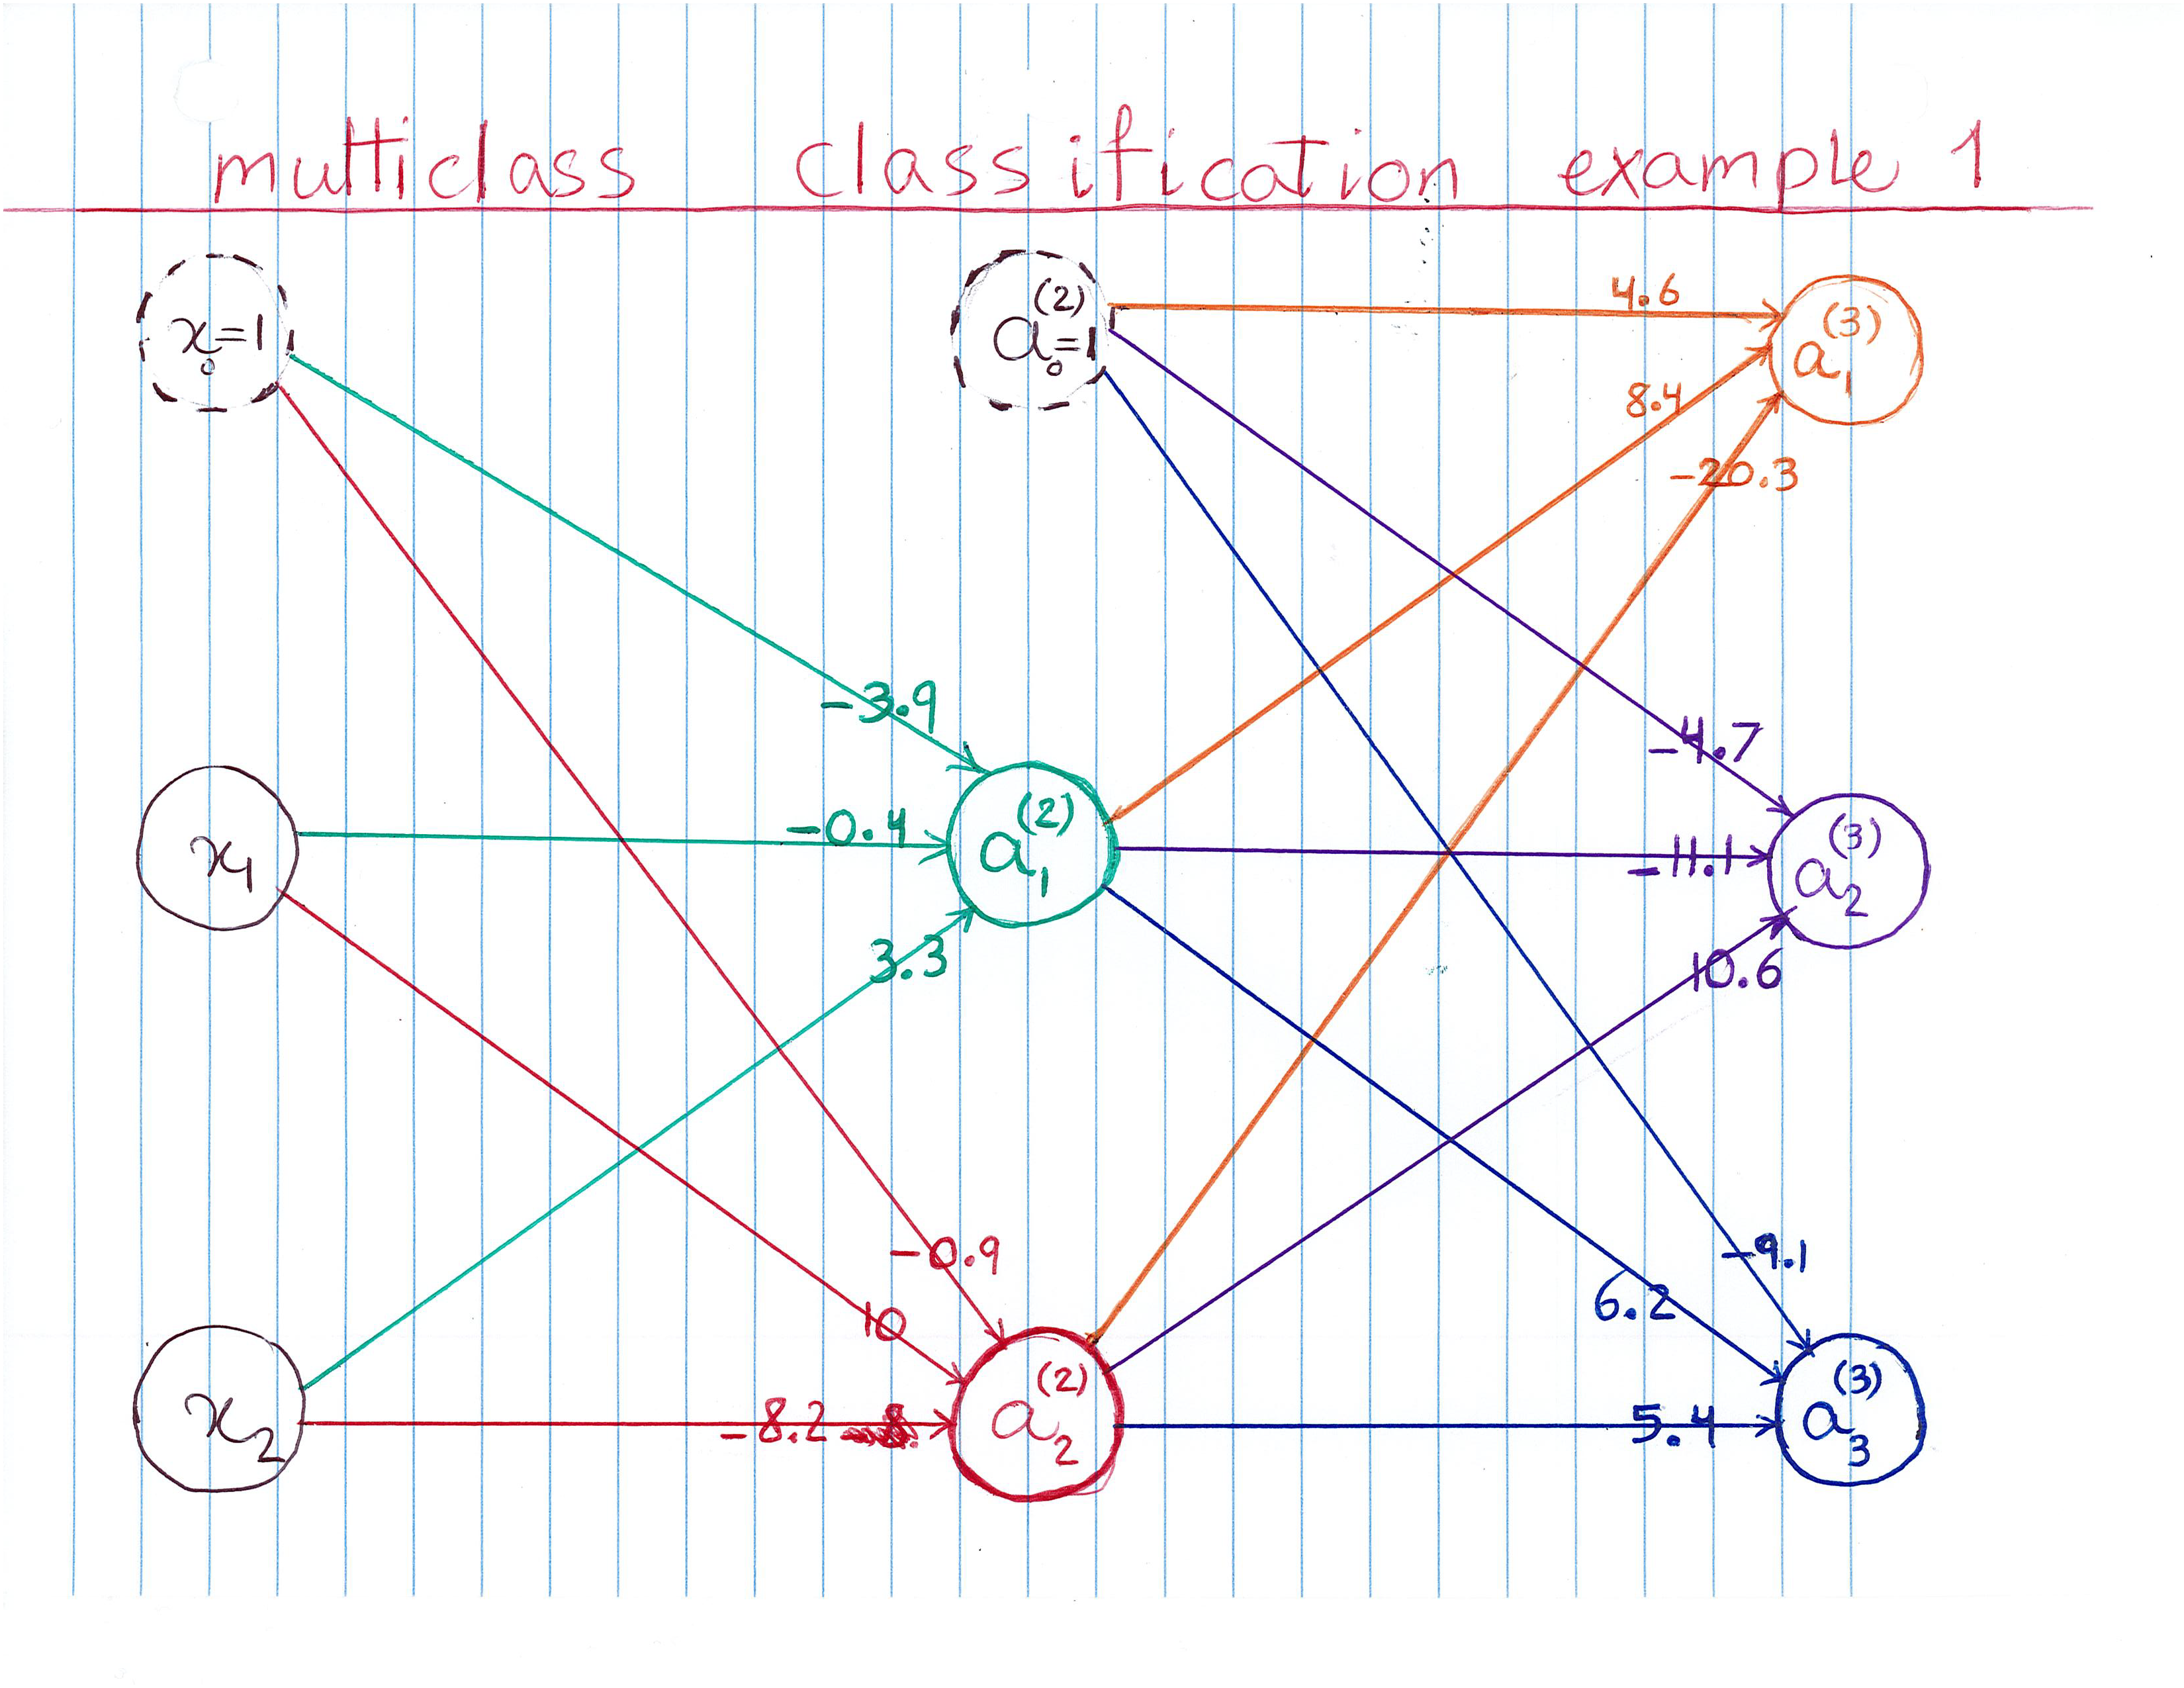 multiclass classification example 1
x₀=1
a₀⁽²⁾=1
4.6
a₁⁽³⁾
8.4
-20.3
-3.9
-4.7
x₁
-0.4
a₁⁽²⁾
-11.1
a₂⁽³⁾
3.3
10.6
-0.9
-9.1
10
6.2
x₂
-8.2
a₂⁽²⁾
5.4
a₃⁽³⁾